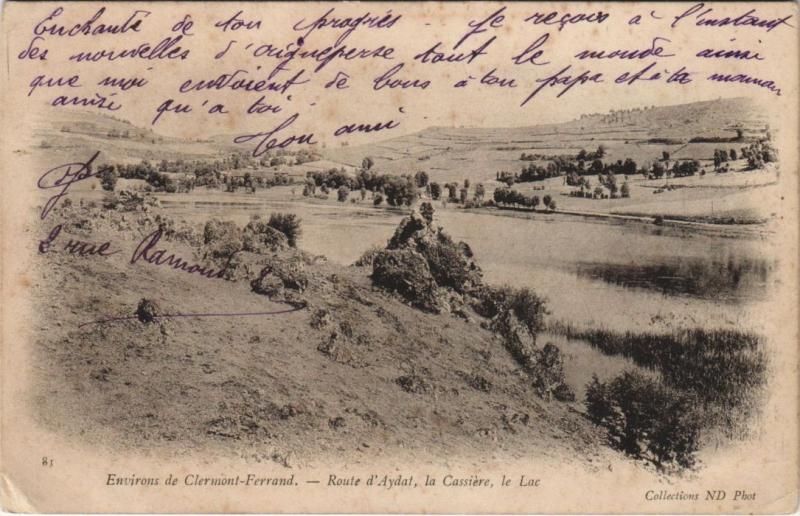 Enchanté de ton progrès. Je reçois à l'instant
des nouvelles d'Aigueperse tout le monde ainsi
que moi envoient de bons à ton papa et à ta maman
amisi qu'à toi
Ton ami
2 rue Ramond
83
Environs de Clermont-Ferrand. — Route d'Aydat, la Cassière, le Lac
Collections ND Phot